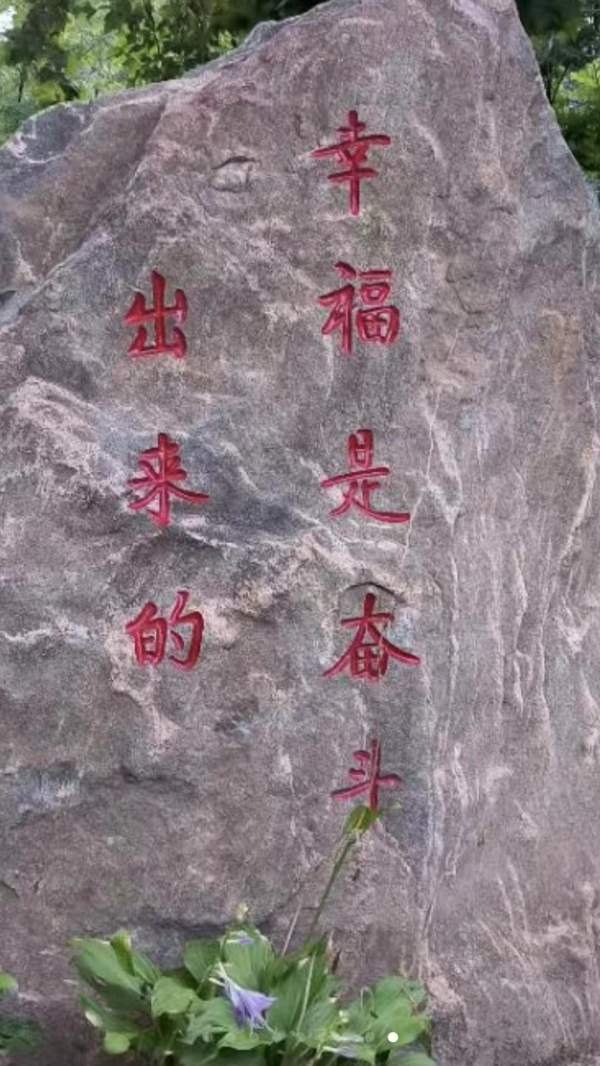 幸福是奋斗
出来的